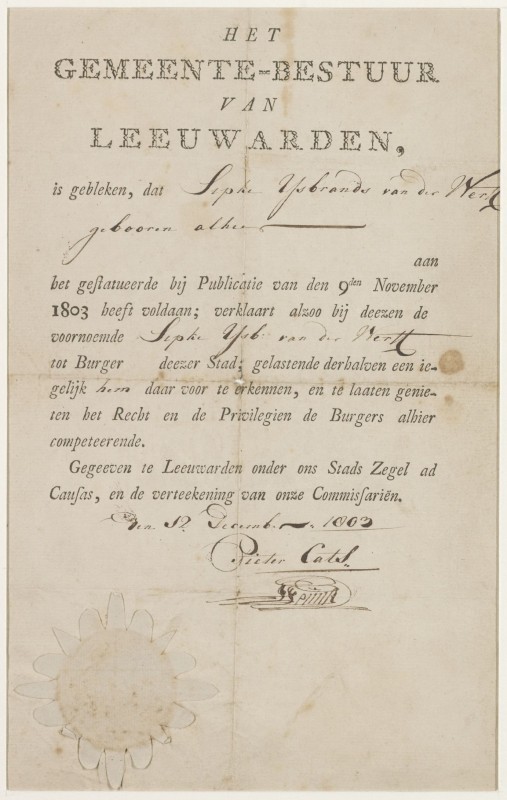 HET
GEMEENTE-BESTUUR
VAN
LEEUWARDEN,
is gebleken, dat Sipke Ysbrands van der Werff
gebooren alhier
aan
het gestatueerde bij Publicatie van den 9den November
1803 heeft voldaan; verklaart alzoo bij deezen de
voornoemde Sipke Ysb: van der Werff
tot Burger deezer Stad; gelastende derhalven een ie-
gelijk hem daar voor te erkennen, en te laaten genie-
ten het Recht en de Privilegien de Burgers alhier
competeerende.
Gegeeven te Leeuwarden onder ons Stads Zegel ad
Causas, en de verteekening van onze Commissariën.
Den December 1803
Pieter Cats.